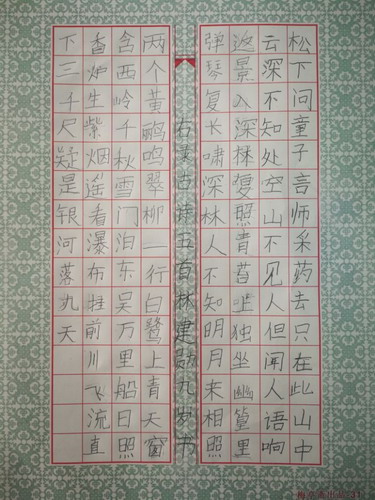 松下问童子言师采药去只在此山中
云深不知处空山不见人但闻人语响
返景入深林复照青苔上独坐幽篁里
弹琴复长啸深林人不知明月来相照
右录古诗五首林建勋九岁书
两个黄鹂鸣翠柳一行白鹭上青天窗
含西岭千秋雪门泊东吴万里船日照
香炉生紫烟遥看瀑布挂前川飞流直
下三千尺疑是银河落九天